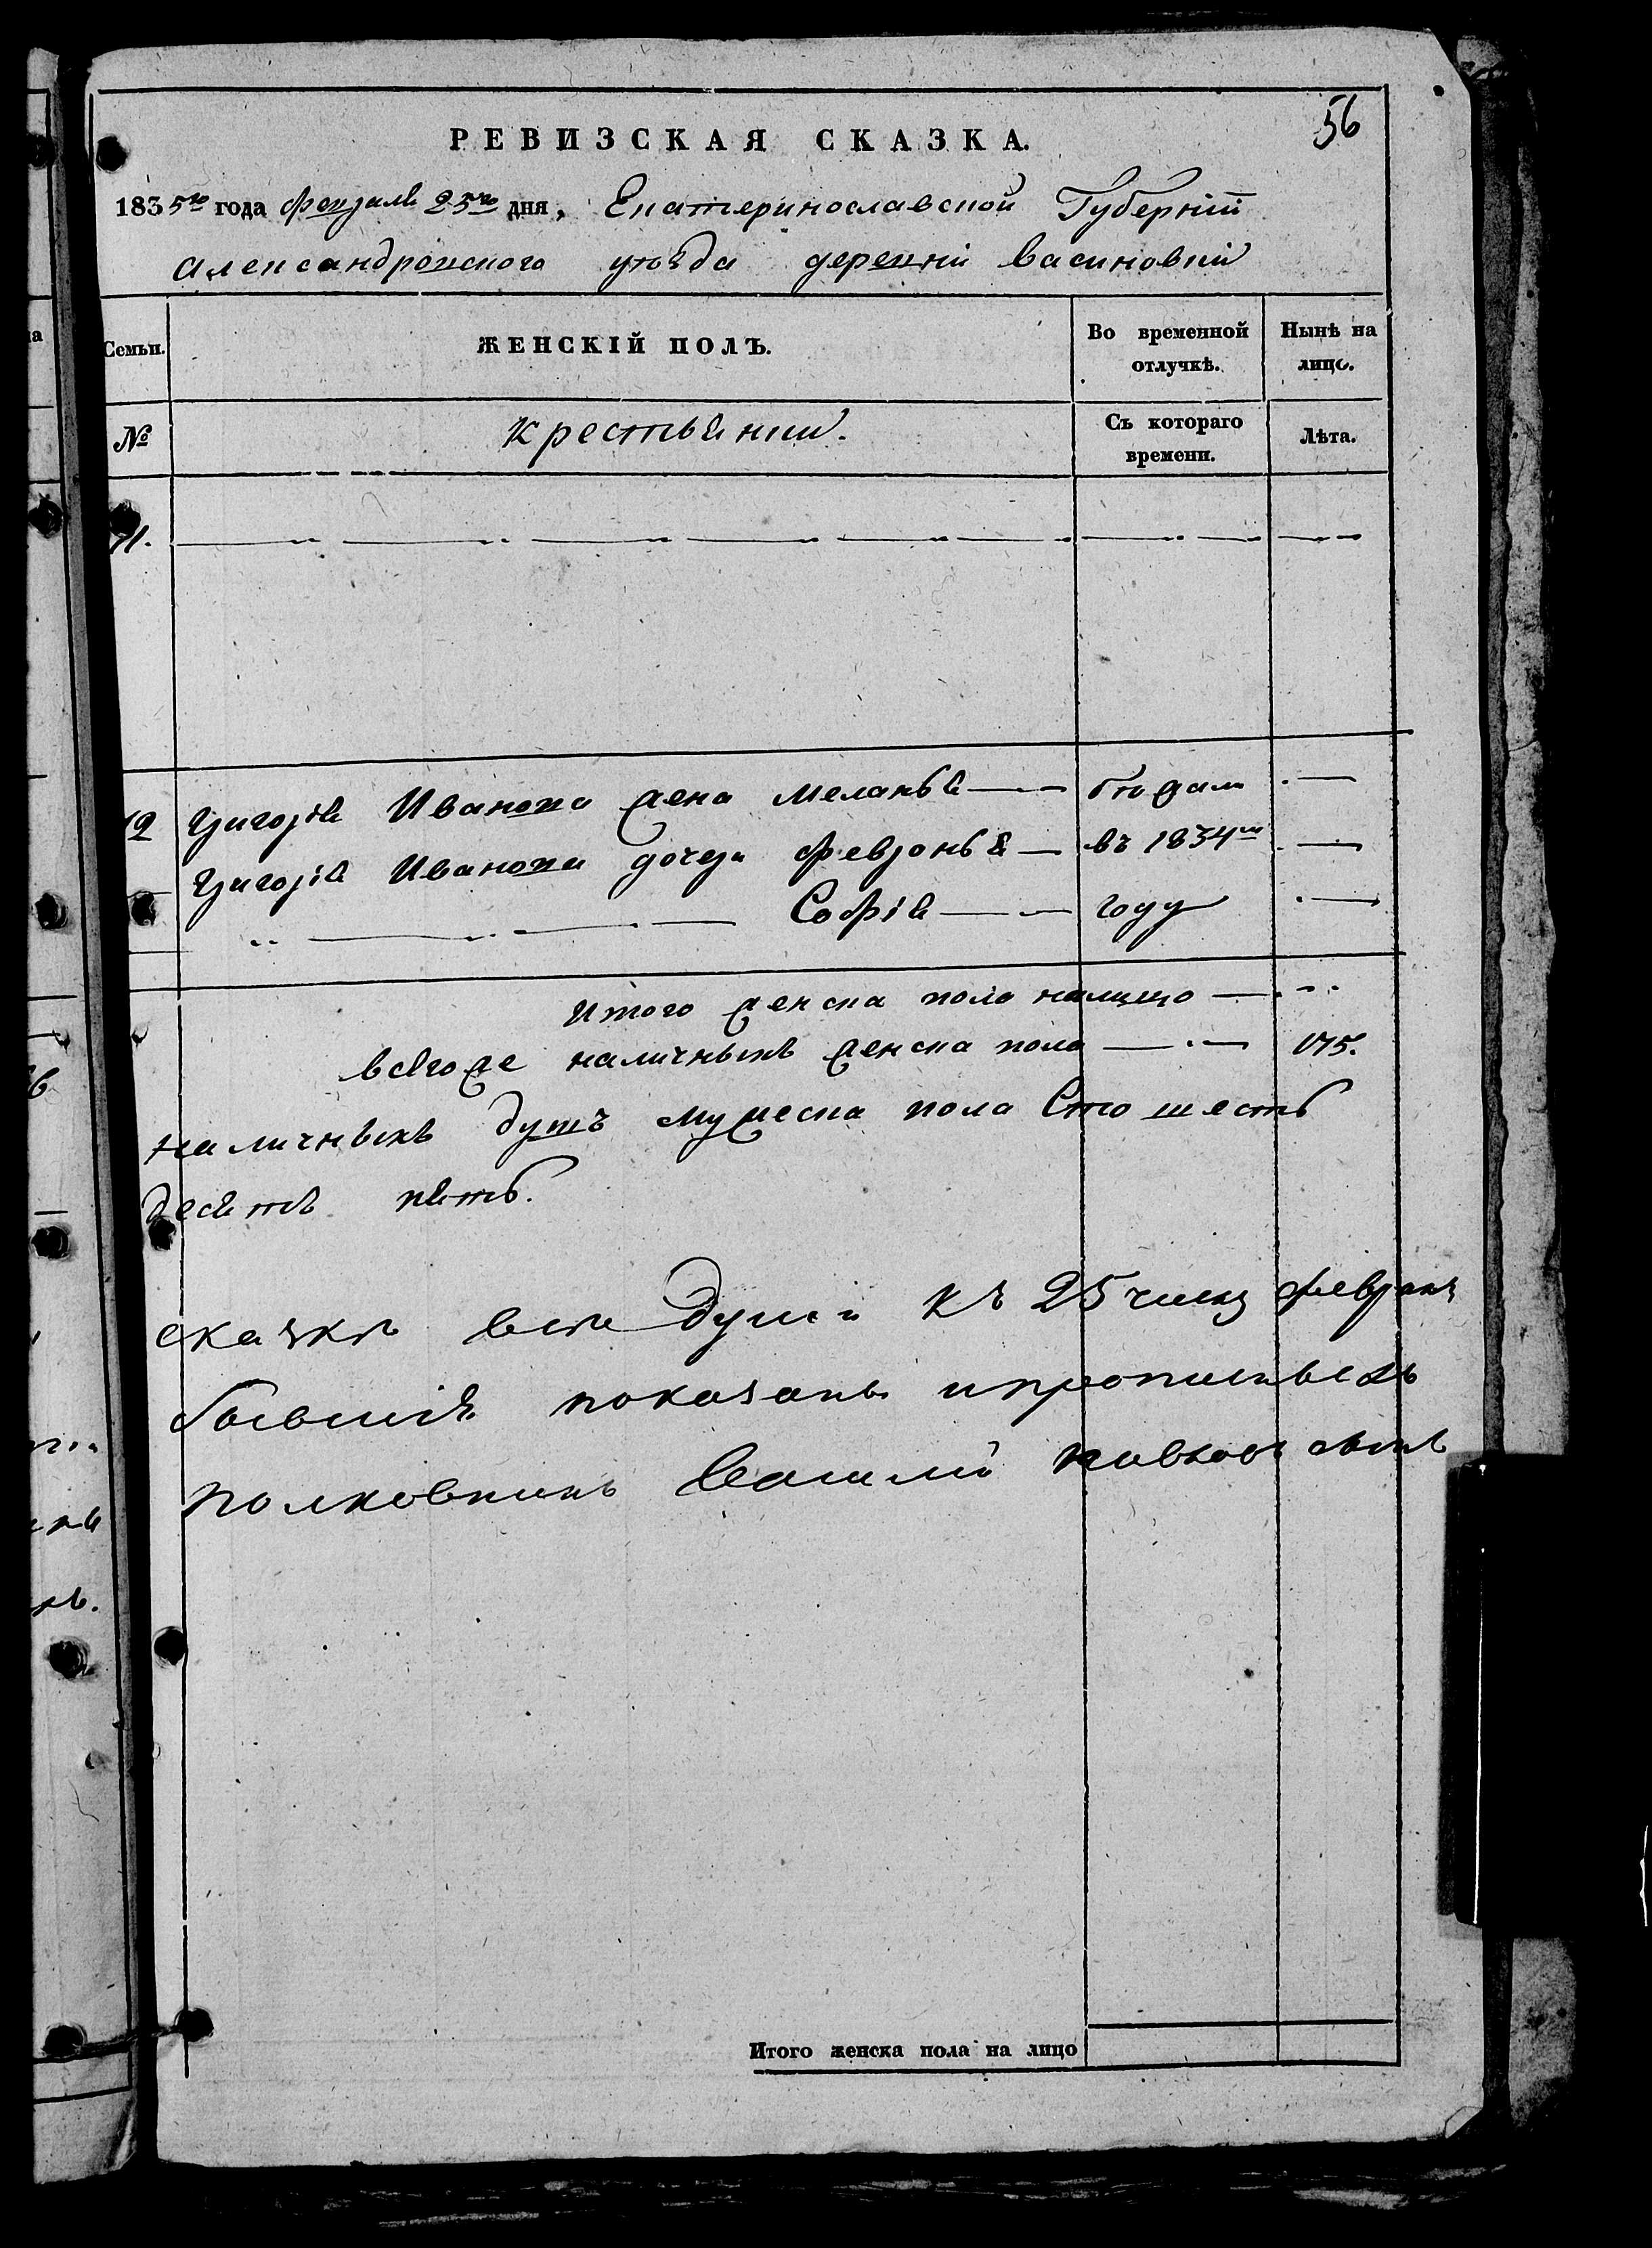 56
РЕВИЗСКАЯ СКАЗКА.
1835го года февраля 25го дня, Екатеринославской Губерніи
Александровского уѣзда деревни Васиновки
Семьи.
ЖЕНСКІЙ ПОЛЪ.
Во временной отлучкѣ.
Нынѣ на лицо.
№
Крестьянки.
Съ котораго времени.
Лѣта.
11.
12 Григорія Иванова жена Меланья — бѣжали —
Григорія Иванова дочери Февронья — въ 1834м —
Софія — году —
Итого женска пола налицо —
Всегоже наличныхъ женска пола — 175.
наличныхъ душъ мужеска пола Сто шесть
десятъ пять.
сказкѣ всѣ души къ 25 числу февраля
бывшія показаны
Полковникъ Василій
Итого женска пола на лицо